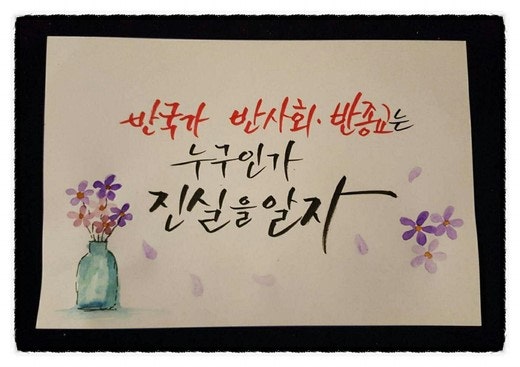 반국가 반사회·반종교는
누구인가
진실을알자